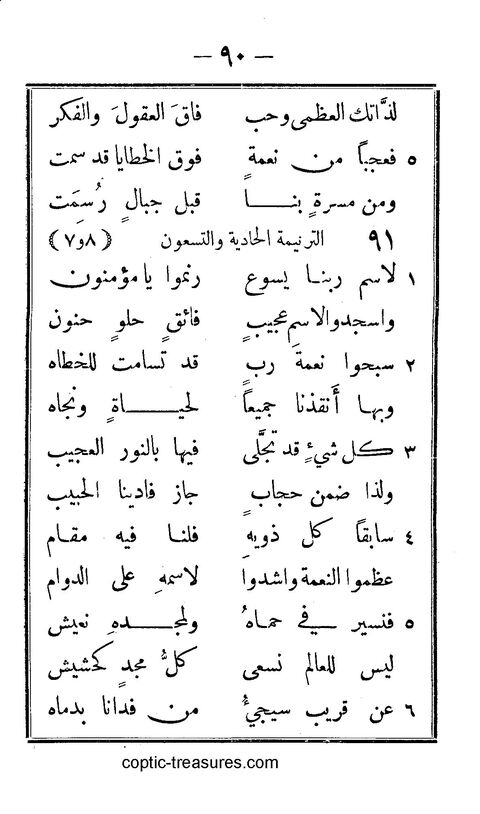 — ٩٠ —
لذَّاتك العظمى وحب فاقَ العقولَ والفكر
٥ فعجباً من نعمةٍ فوق الخطايا قد سمت
ومن مسرةٍ بنـا قبل جبالٍ رُسِمَت
٩١ الترنيمة الحادية والتسعون (٨و٧)
١ لاسم ربنا يسوع رنموا يا مؤمنون
واسجدوا لاسمٍ عجيبٍ فائقٍ حلوٍ حنون
٢ سبحوا نعمةَ ربٍ قد تسامت للخطاه
وبها أَنقذنا جميعاً لحيـاةٍ ونجاه
٣ كل شيءٍ قد تجلَّى فيها بالنور العجيب
ولذا ضمن حجابٍ جاز فادينا الحبيب
٤ سابقاً كل ذويهِ فلنا فيه مقام
عظموا النعمة واشدوا لاسمهِ على الدوام
٥ فنسير في حماهُ ولمجدهِ نعيش
ليس للعالم نسعى كلُّ مجدٍ كحشيش
٦ عن قريب سيجيءُ من فدانا بدماه
coptic-treasures.com